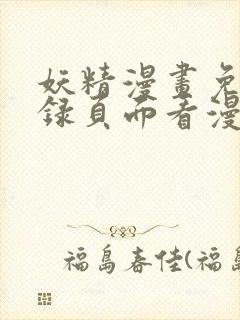 妖精漫畫免
録頁面看漫
福島春佳(福島